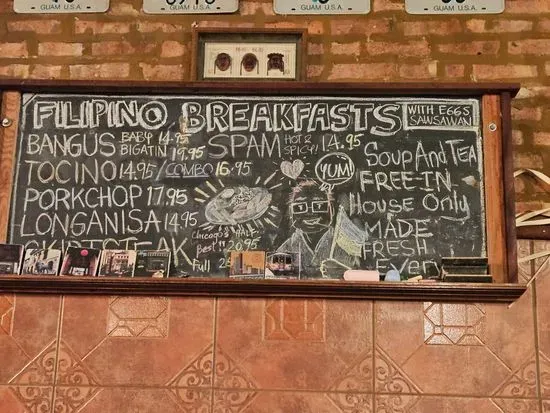 GUAM U.S.A.
GUAM U.S.A.
GUAM U.S.A.
FILIPINO BREAKFASTS
WITH EGGS
SAWSAWAN
BANGUS BABY 14.95
BIGATIN 19.95
SPAM HOT & SPICY! 14.95
TOCINO 14.95/COMBO 16.95
PORKCHOP 17.95
LONGANISA 14.95
SKIRT STEAK
Chicago's
Best"! 20.95
Full
YUM!
Soup And Tea
FREE-IN
House Only
MADE
FRESH